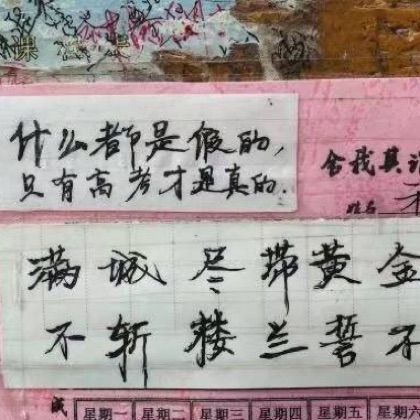 什么都是假的,
只有高考才是真的.
舍我其
姓名
满城尽带黄金
不斩楼兰誓不
星期一 星期二 星期三 星期四 星期五 星期六